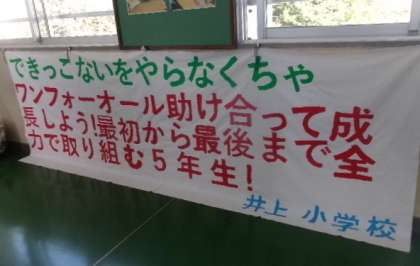 できっこないをやらなくちゃ
ワンフォーオール助け合って成
長しよう!最初から最後まで全
力で取り組む5年生!
井上小学校